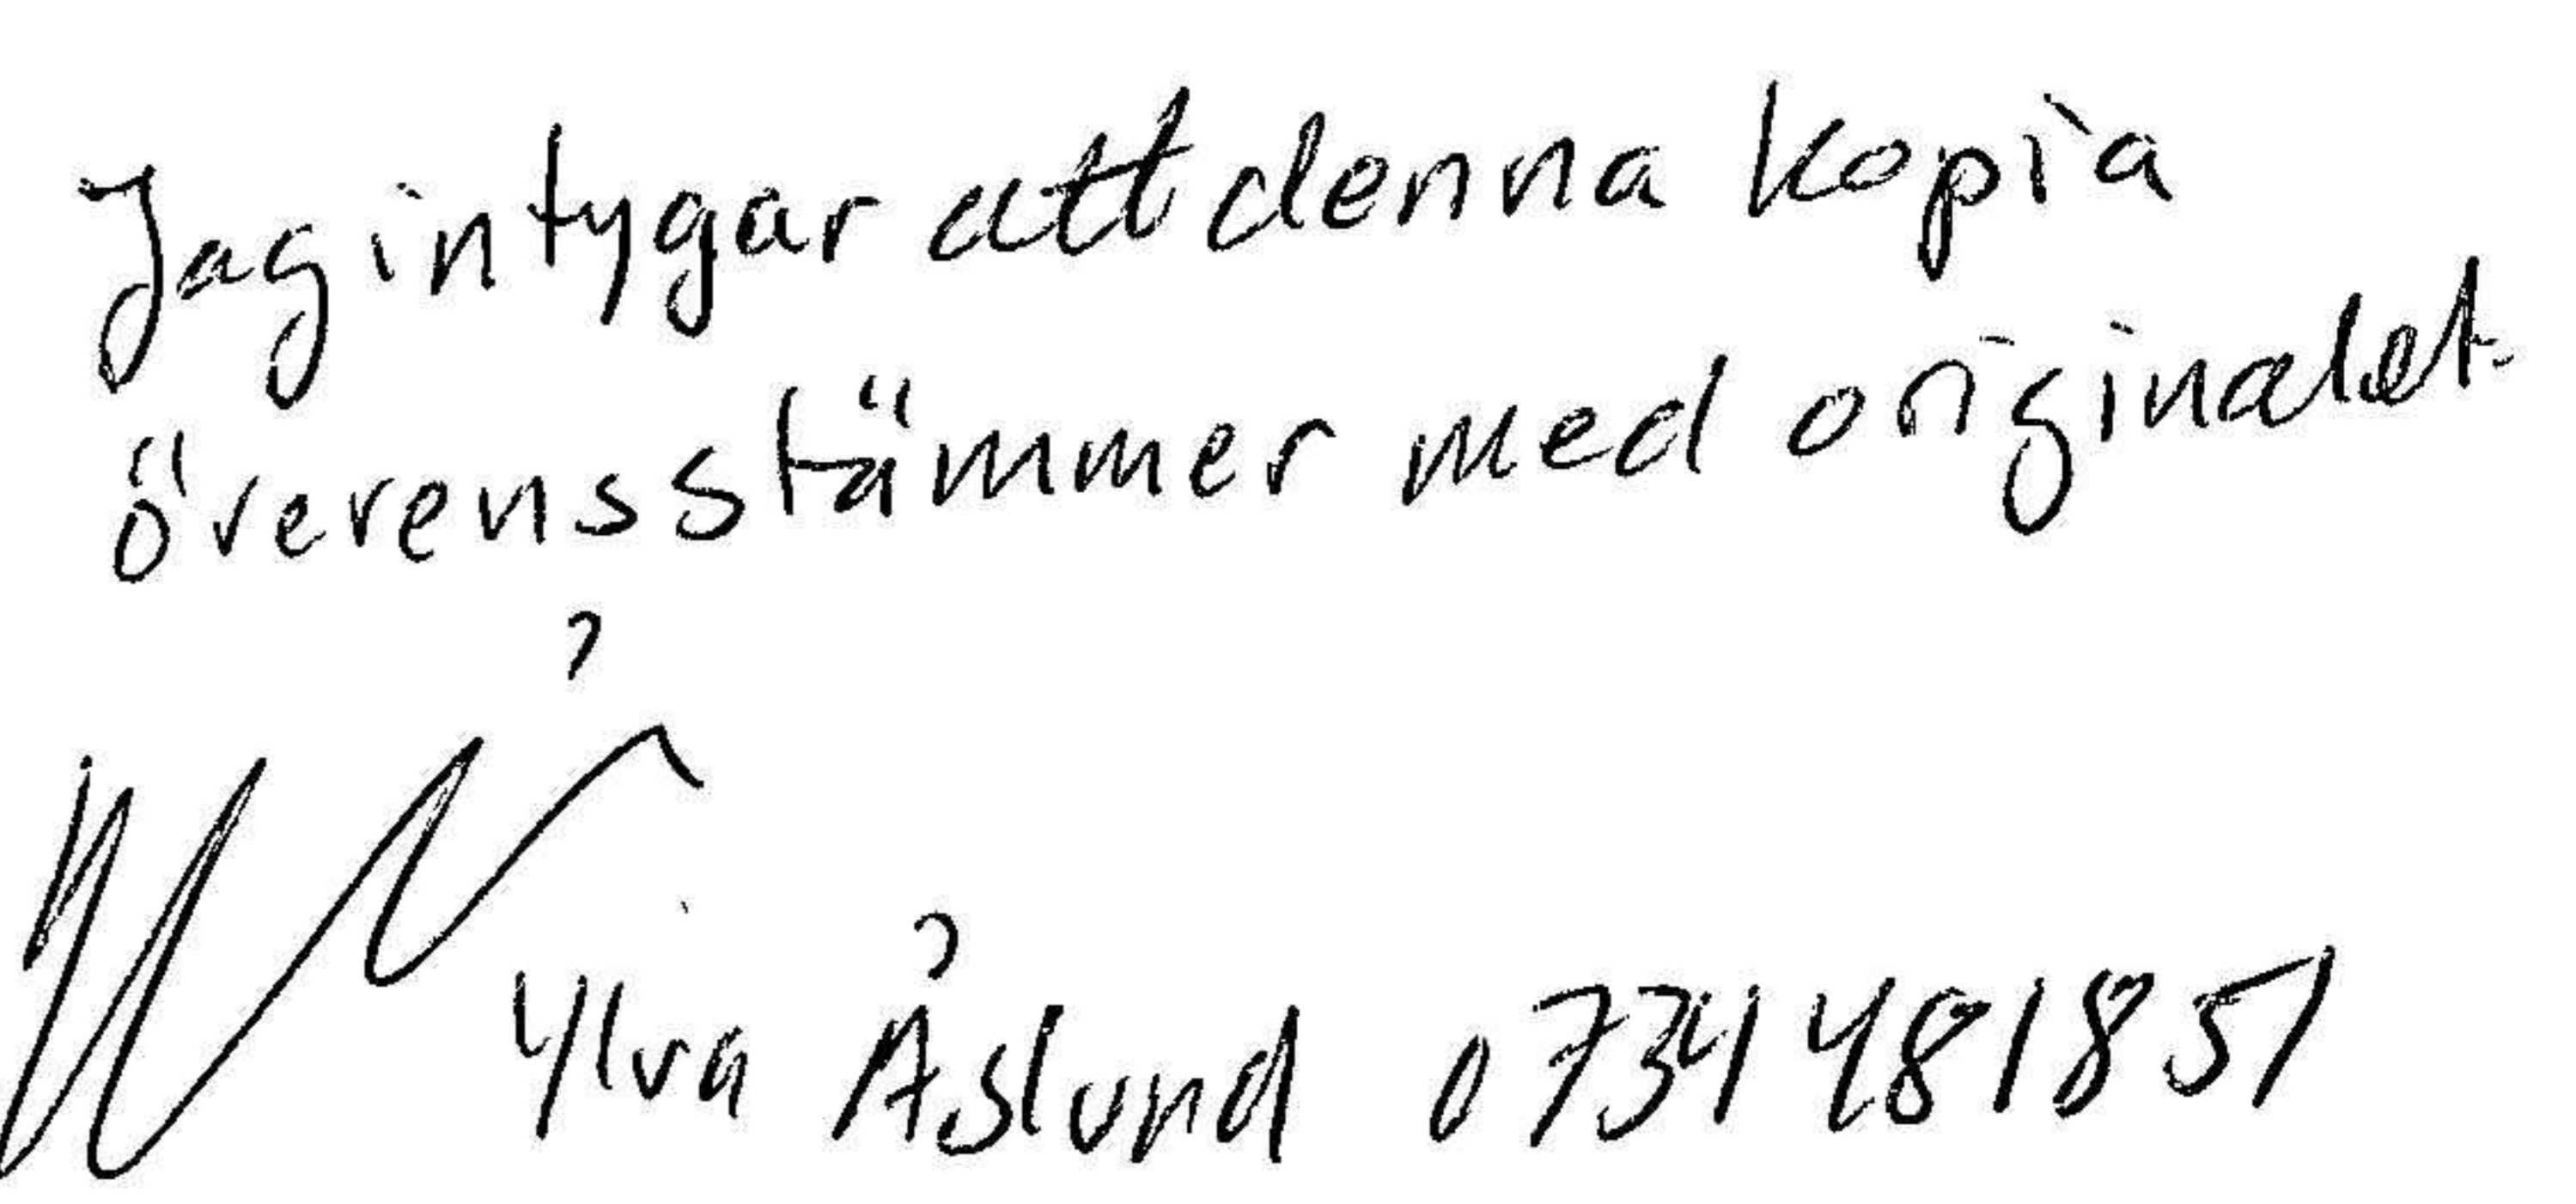 Jag intygar att denna kopia
överensstämmer med originalet.
Ylva Åslund 0734481851